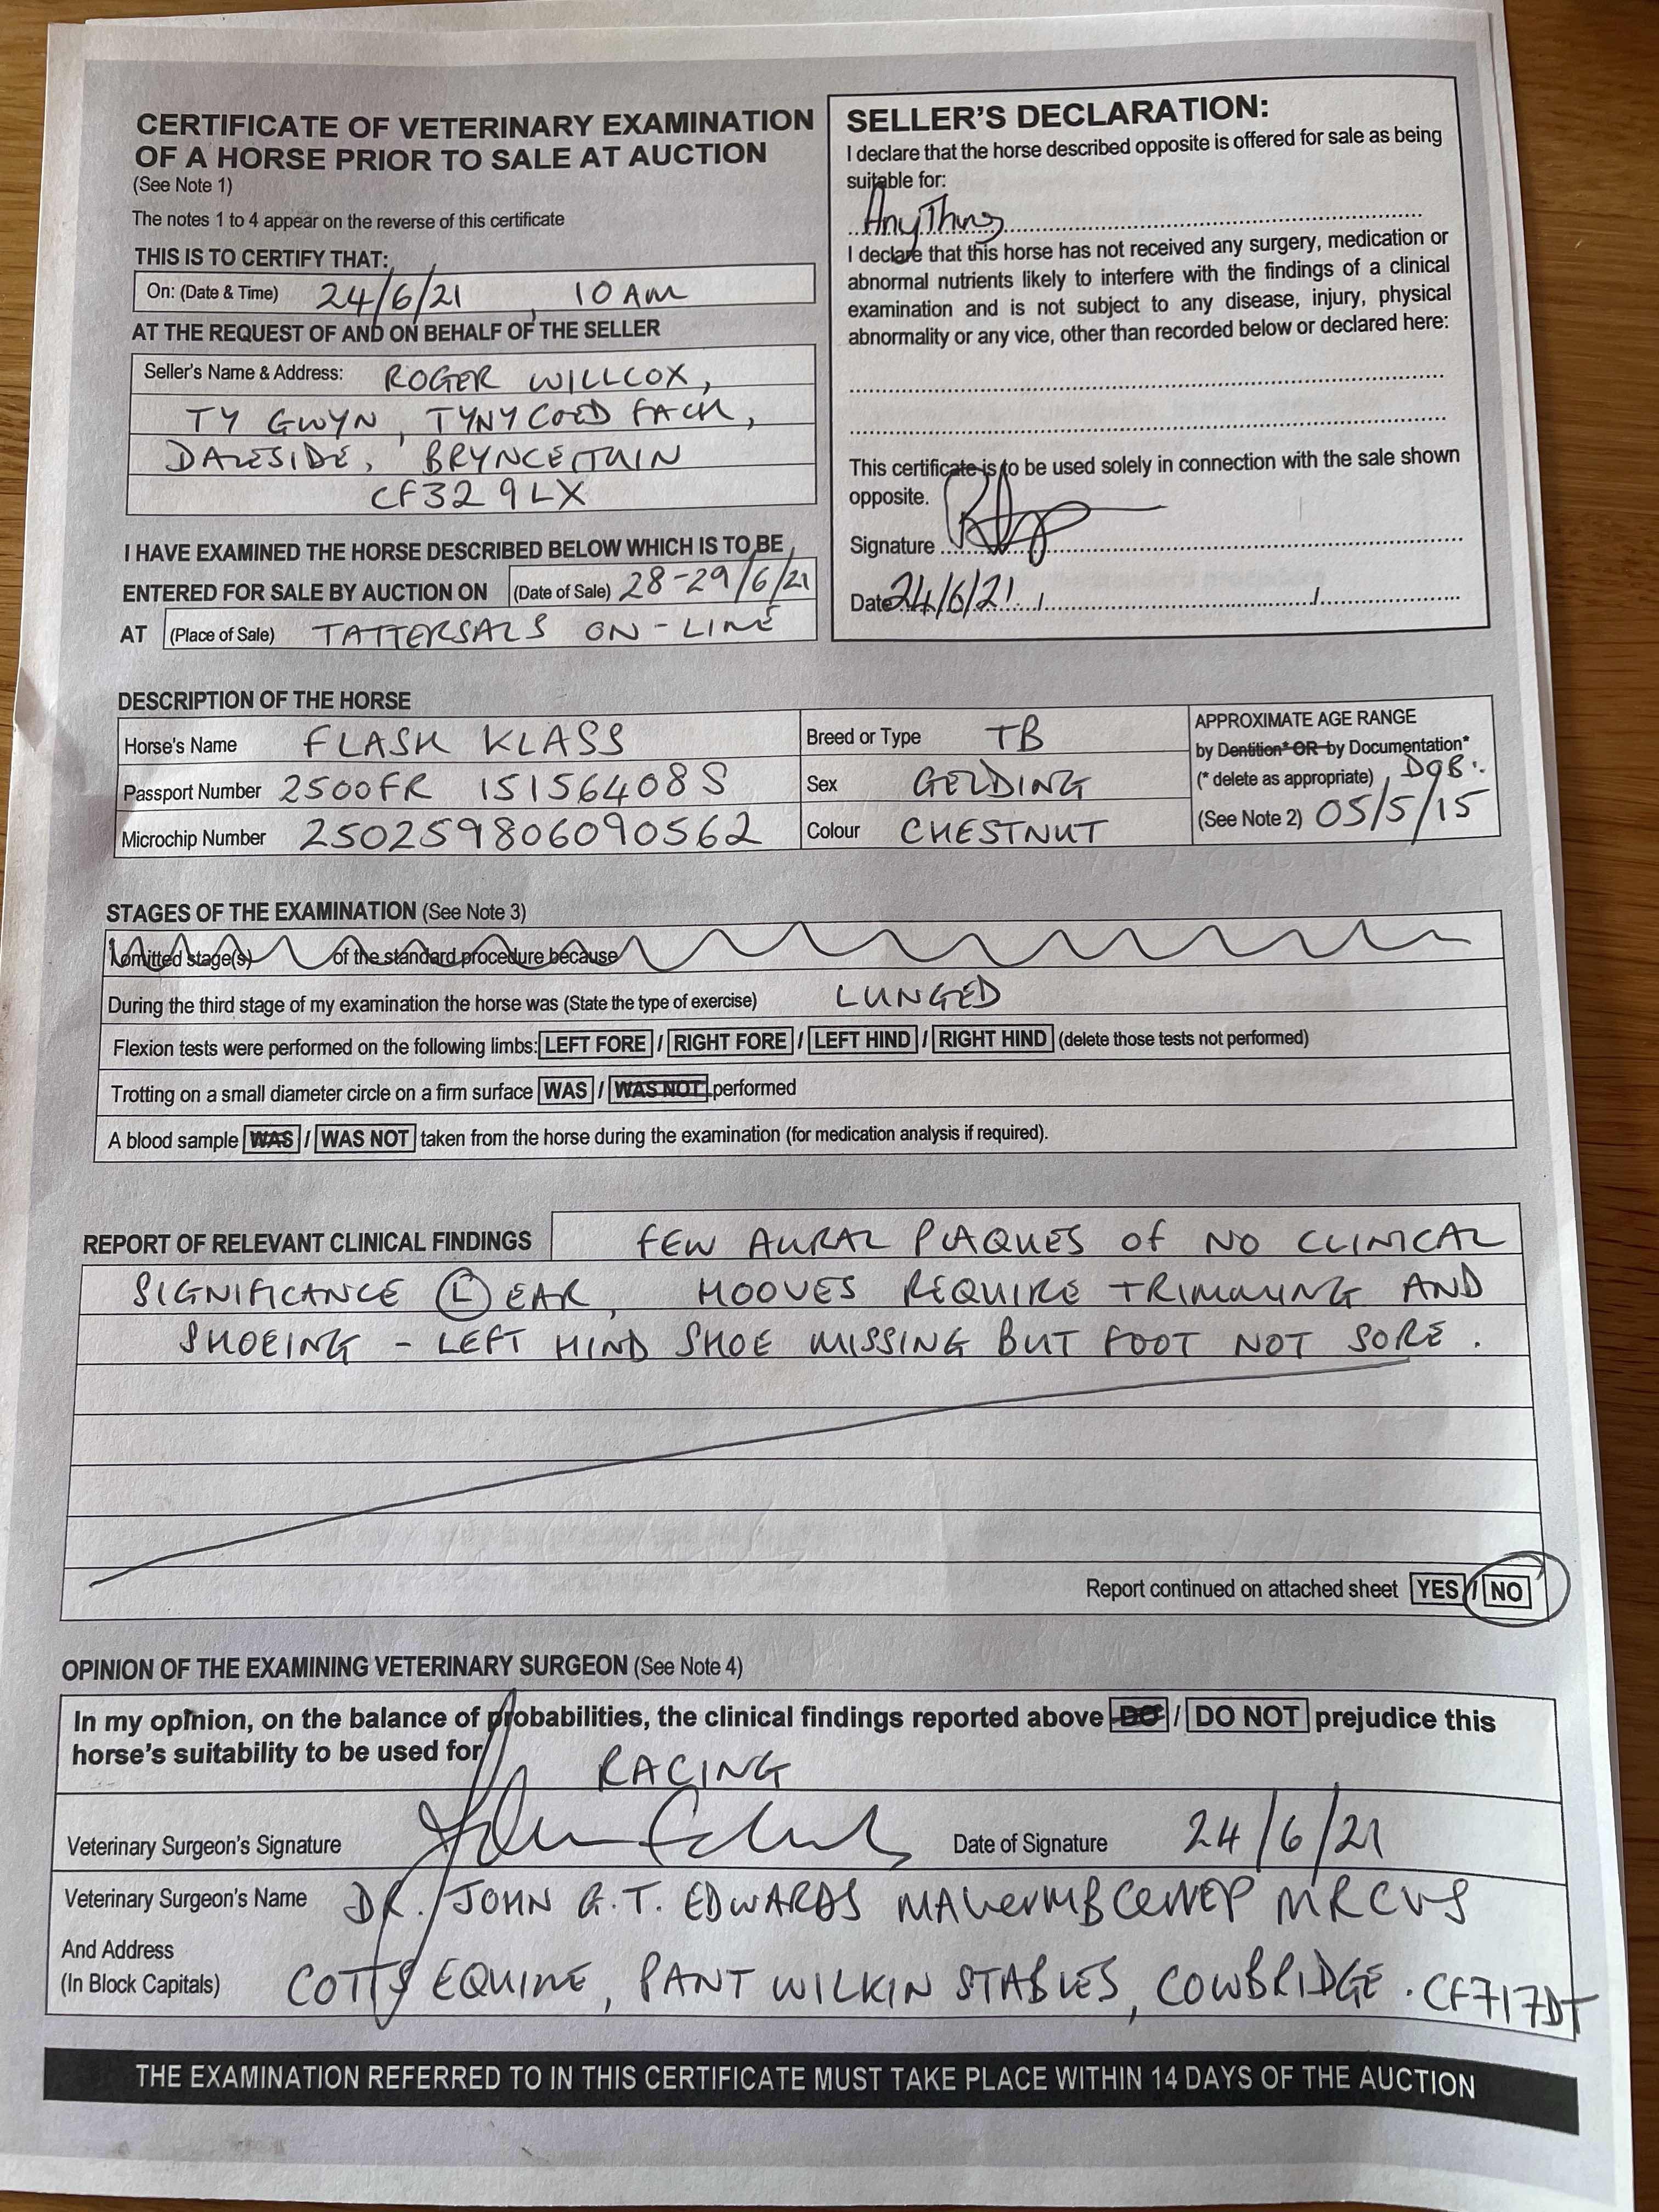 CERTIFICATE OF VETERINARY EXAMINATION
OF A HORSE PRIOR TO SALE AT AUCTION
(See Note 1)
The notes 1 to 4 appear on the reverse of this certificate
THIS IS TO CERTIFY THAT:
On: (Date & Time) 24/6/21, 10 AM
AT THE REQUEST OF AND ON BEHALF OF THE SELLER
Seller's Name & Address: ROGER WILLCOX,
TY GWYN, TYNYCOED FACH,
DALESIDE, BRYNCETHIN
CF32 9LX
I HAVE EXAMINED THE HORSE DESCRIBED BELOW WHICH IS TO BE
ENTERED FOR SALE BY AUCTION ON (Date of Sale) 28-29/6/21
AT (Place of Sale) TATTERSALS ON-LINE
SELLER'S DECLARATION:
I declare that the horse described opposite is offered for sale as being
suitable for:
AnyThing
I declare that this horse has not received any surgery, medication or
abnormal nutrients likely to interfere with the findings of a clinical
examination and is not subject to any disease, injury, physical
abnormality or any vice, other than recorded below or declared here:
This certificate is to be used solely in connection with the sale shown
opposite.
Signature
Date 24/6/21
DESCRIPTION OF THE HORSE
Horse's Name FLASH KLASS
Passport Number 2500FR 15156408S
Microchip Number 250259806090562
Breed or Type TB
Sex GELDING
Colour CHESTNUT
APPROXIMATE AGE RANGE
by Dentition* OR by Documentation*
(* delete as appropriate), DOB:
(See Note 2) 05/5/15
STAGES OF THE EXAMINATION (See Note 3)
I omitted stage(s) of the standard procedure because
During the third stage of my examination the horse was (State the type of exercise) LUNGED
Flexion tests were performed on the following limbs: LEFT FORE / RIGHT FORE / LEFT HIND / RIGHT HIND (delete those tests not performed)
Trotting on a small diameter circle on a firm surface WAS / WAS NOT performed
A blood sample WAS / WAS NOT taken from the horse during the examination (for medication analysis if required).
REPORT OF RELEVANT CLINICAL FINDINGS FEW AURAL PLAQUES OF NO CLINICAL
SIGNIFICANCE (L) EAR, HOOVES REQUIRE TRIMMING AND
SHOEING - LEFT HIND SHOE MISSING BUT FOOT NOT SORE.
Report continued on attached sheet YES / NO
OPINION OF THE EXAMINING VETERINARY SURGEON (See Note 4)
In my opinion, on the balance of probabilities, the clinical findings reported above DO / DO NOT prejudice this
horse's suitability to be used for
RACING
Veterinary Surgeon's Signature
Date of Signature 24/6/21
Veterinary Surgeon's Name DR. JOHN G.T. EDWARDS MAVetMB CertEP MRCVS
And Address
(In Block Capitals) COTTS EQUINE, PANT WILKIN STABLES, COWBRIDGE. CF717DT
THE EXAMINATION REFERRED TO IN THIS CERTIFICATE MUST TAKE PLACE WITHIN 14 DAYS OF THE AUCTION